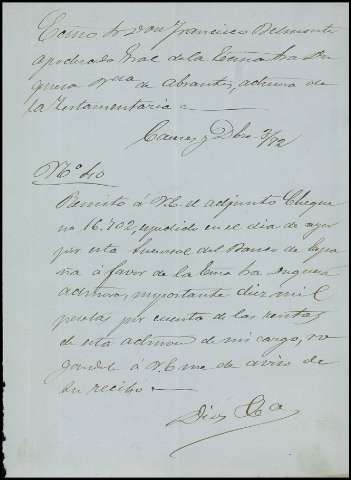 Excmo Sr Don Francisco Belmonte
apoderado Gral de la Excma Sra Du
quesa Vda de Abrantes, admora de
la Testamentaria
Caceres y Dbre 3/92
Nº 40
Remito á V.E. el adjunto Cheque
no 16.702, expedido en el dia de ayer
por esta Sucursal del Banco de Espa
ña á favor de la Excma Sra Duquesa
admora, importante diez mil
pesetas por cuenta de las rentas
de esta admon de mi cargo, ro
gando á V.E. me de aviso de
su recibo
Dios &a